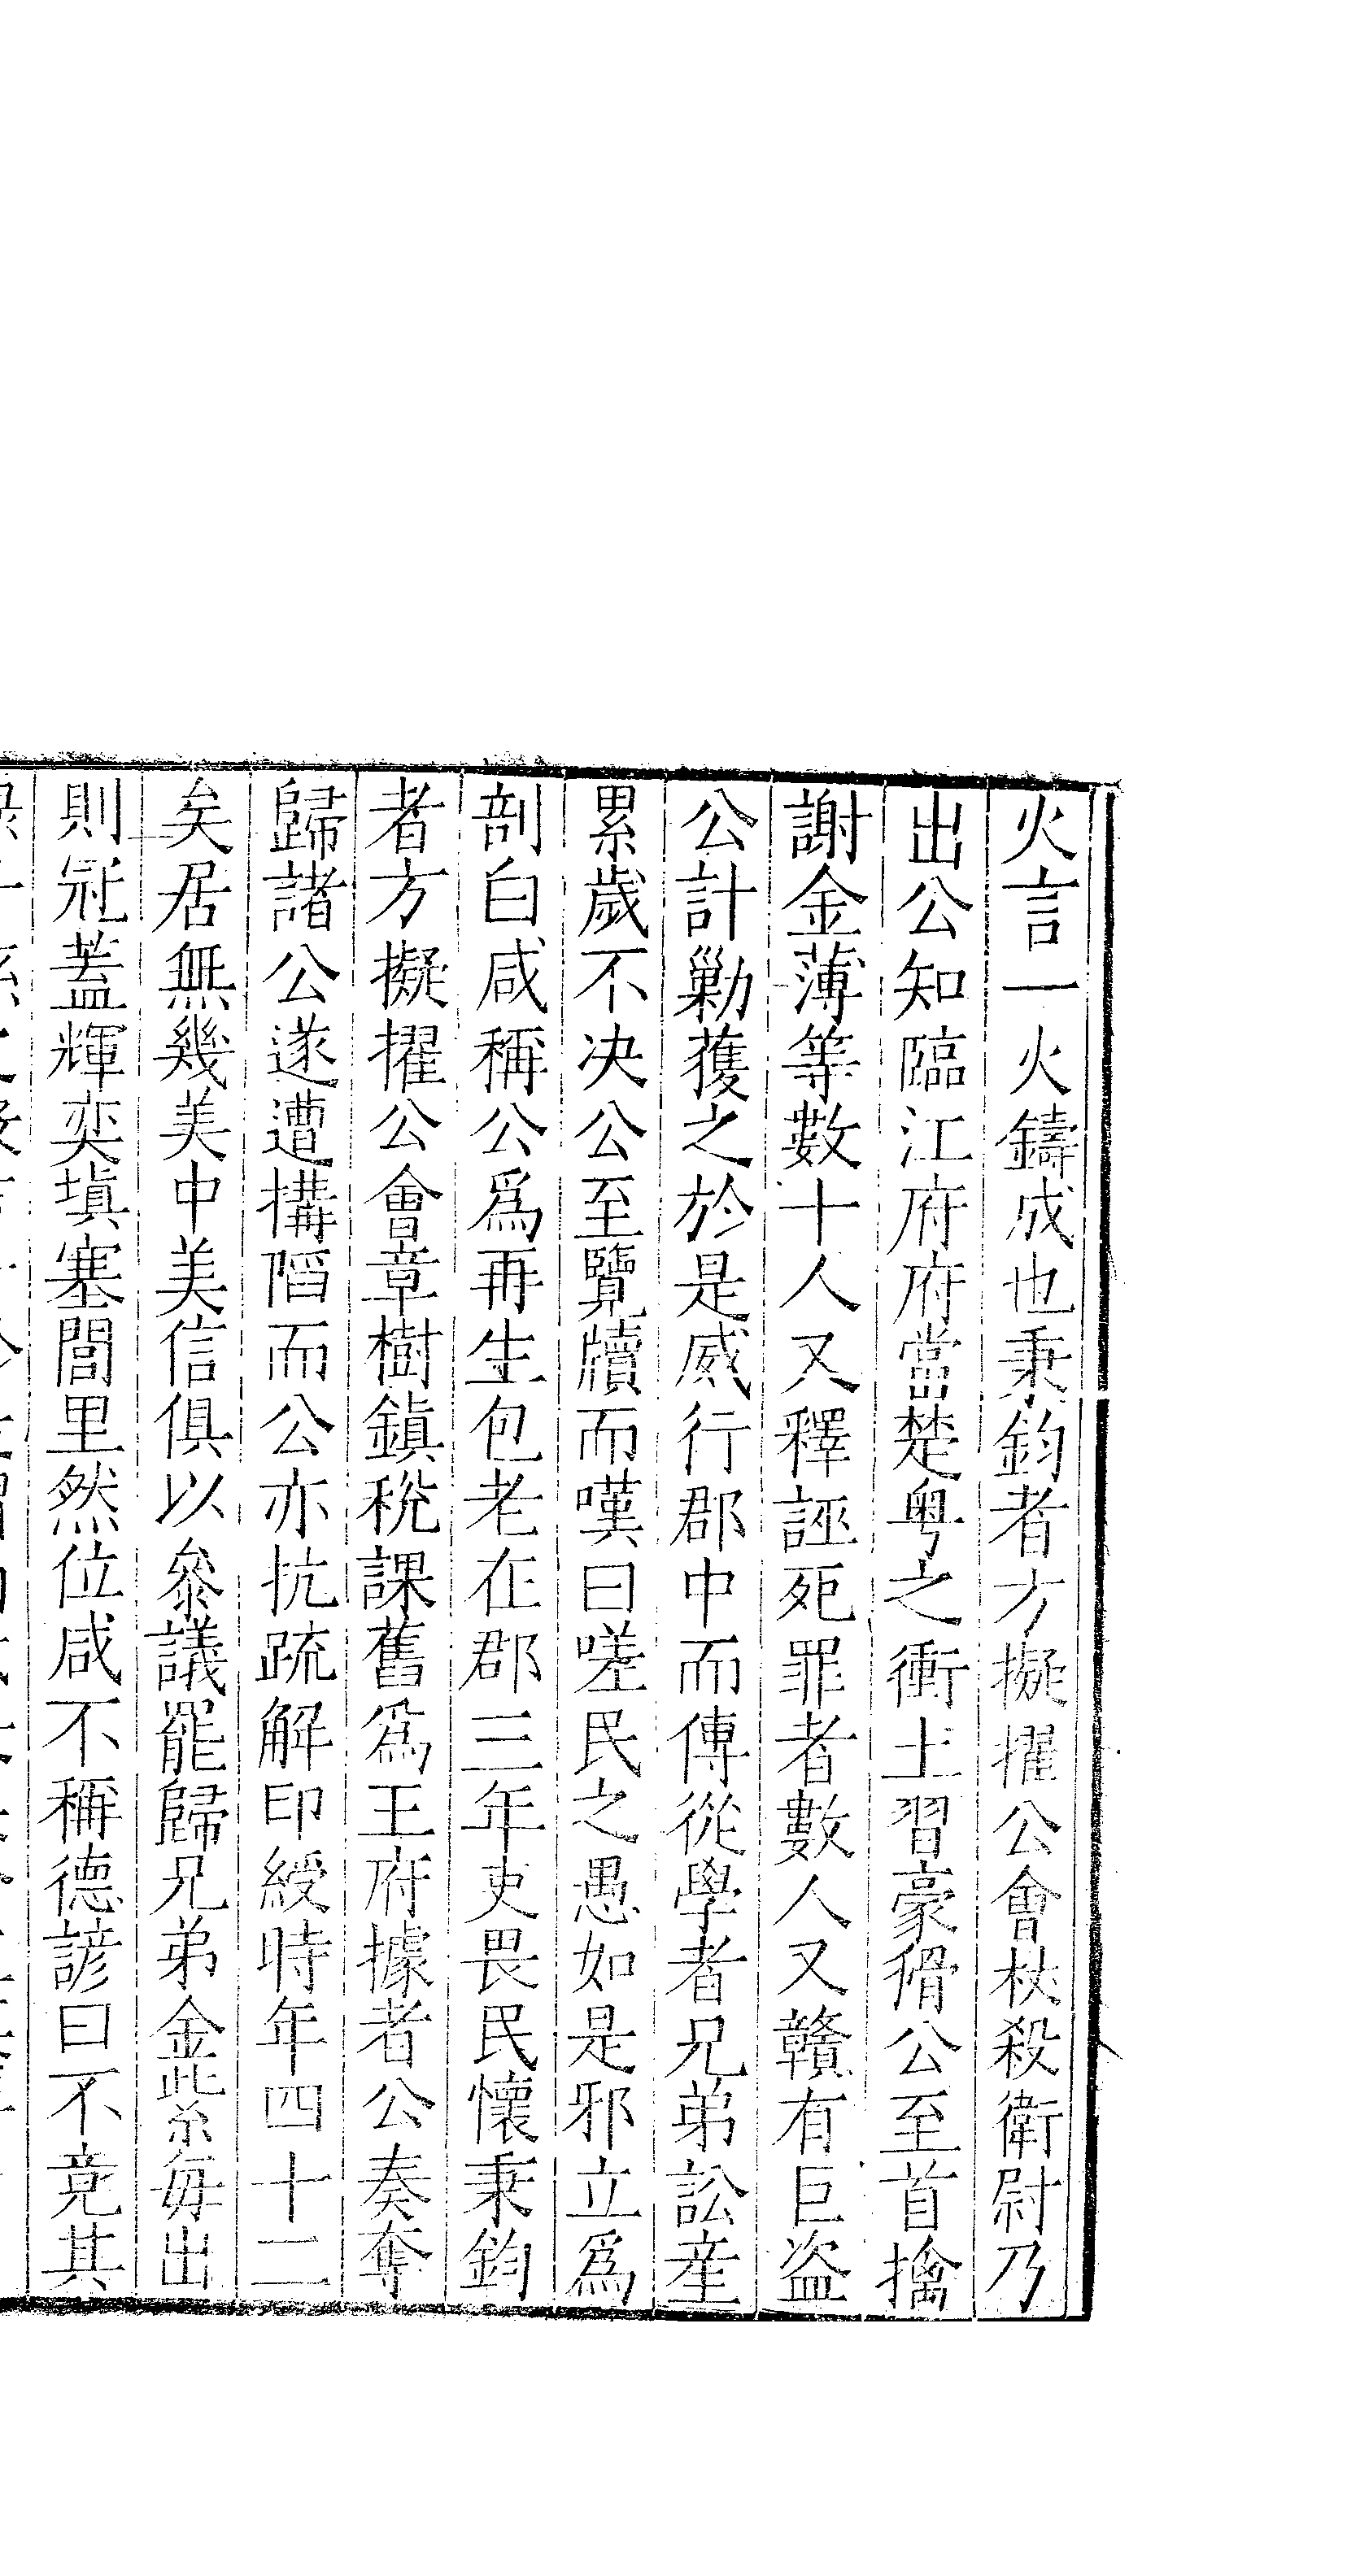 火言一火鑄成也秉鈞者方擬擢公會杖殺衛尉乃
出公知臨江府府當楚粤之衝土習豪猾公至首擒
謝金薄等數十人又釋誣死罪者數人又贛有巨盗
公計勦獲之於是威行郡中而傳從學者兄弟訟産
累歲不决公至覽牘而嘆曰嗟民之愚如是邪立爲
剖白咸稱公爲再生包老在郡三年吏畏民懷秉鈞
者方擬擢公會章樹鎮稅課舊爲王府據者公奏奪
歸諸公遂遭搆陷而公亦抗疏解印綬時年四十二
矣居無幾美中美信俱以叅議罷歸兄弟金紫每出
則冠蓋輝奕塡塞閭里然位咸不稱德諺曰不竟其